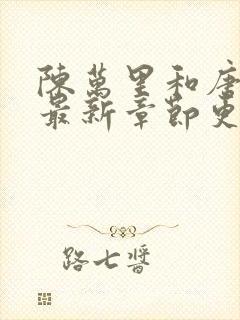 陳萬里和唐
最新章節更
路七醬